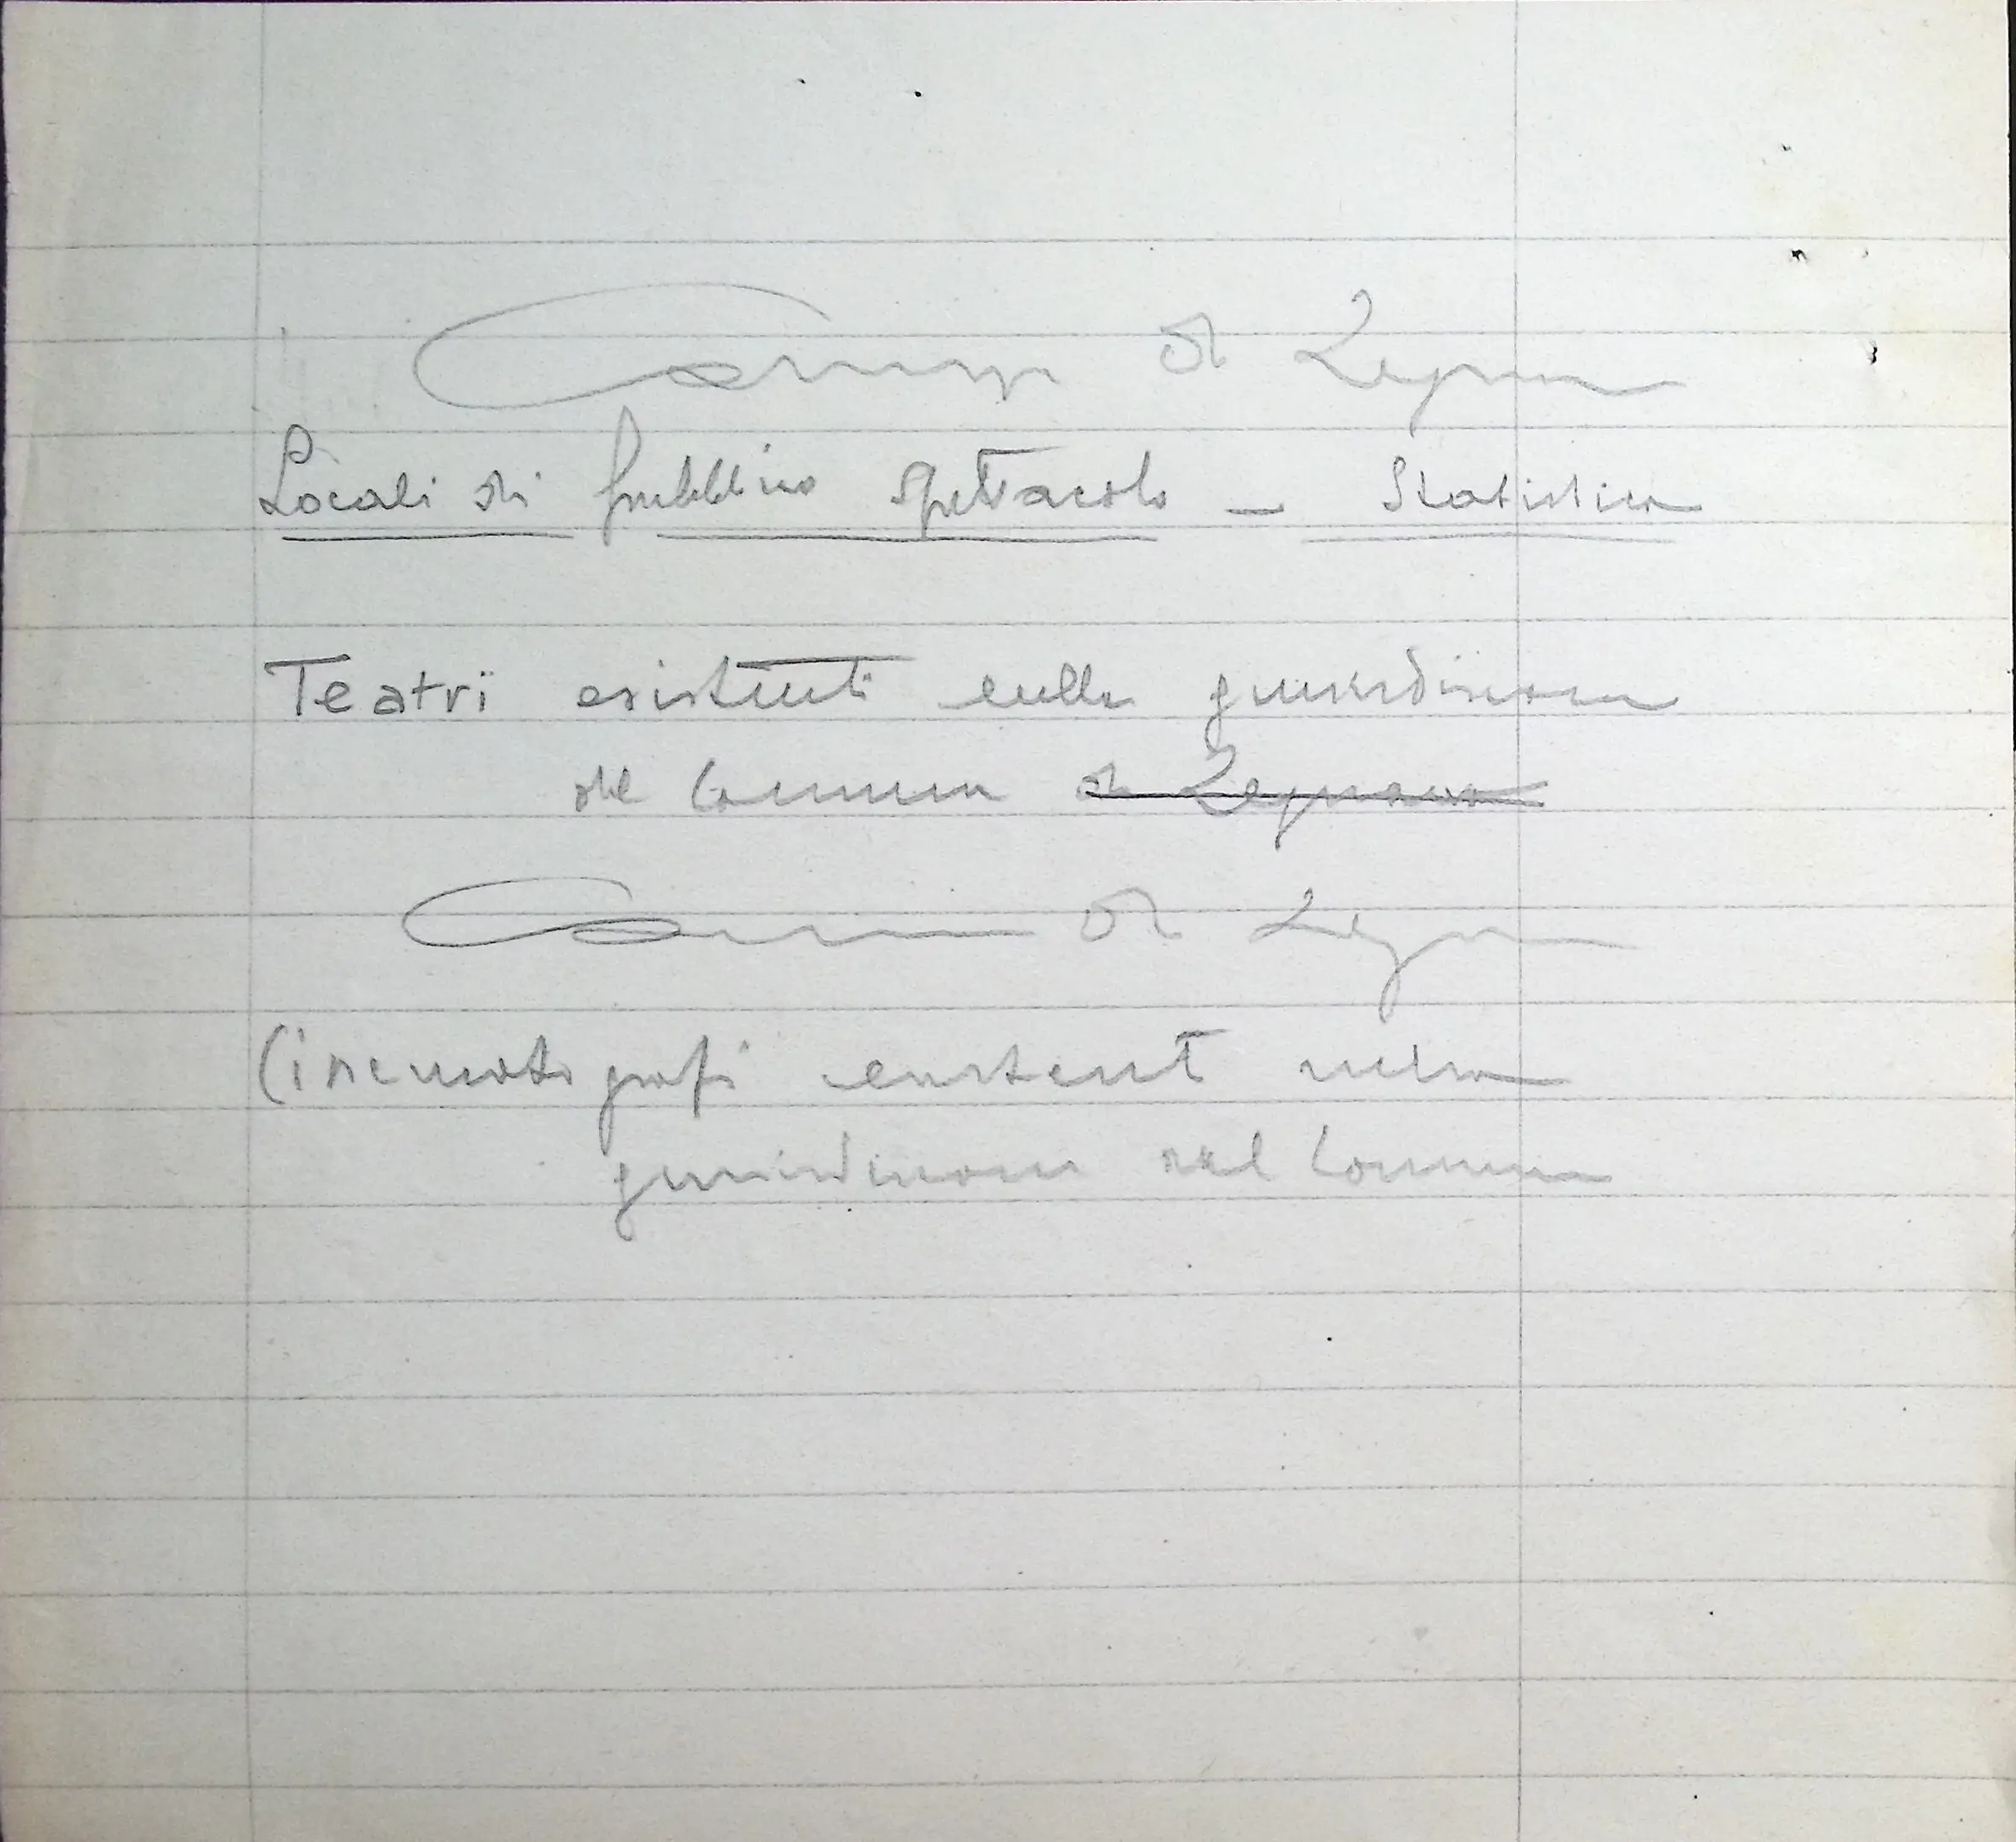 Comune di Legnano
Locali di pubblico spettacolo - Statistica
Teatri esistenti nella giurisdizione
del Comune di Legnano
Comune di Legnano
Cinematografi esistenti nella
giurisdizione del Comune